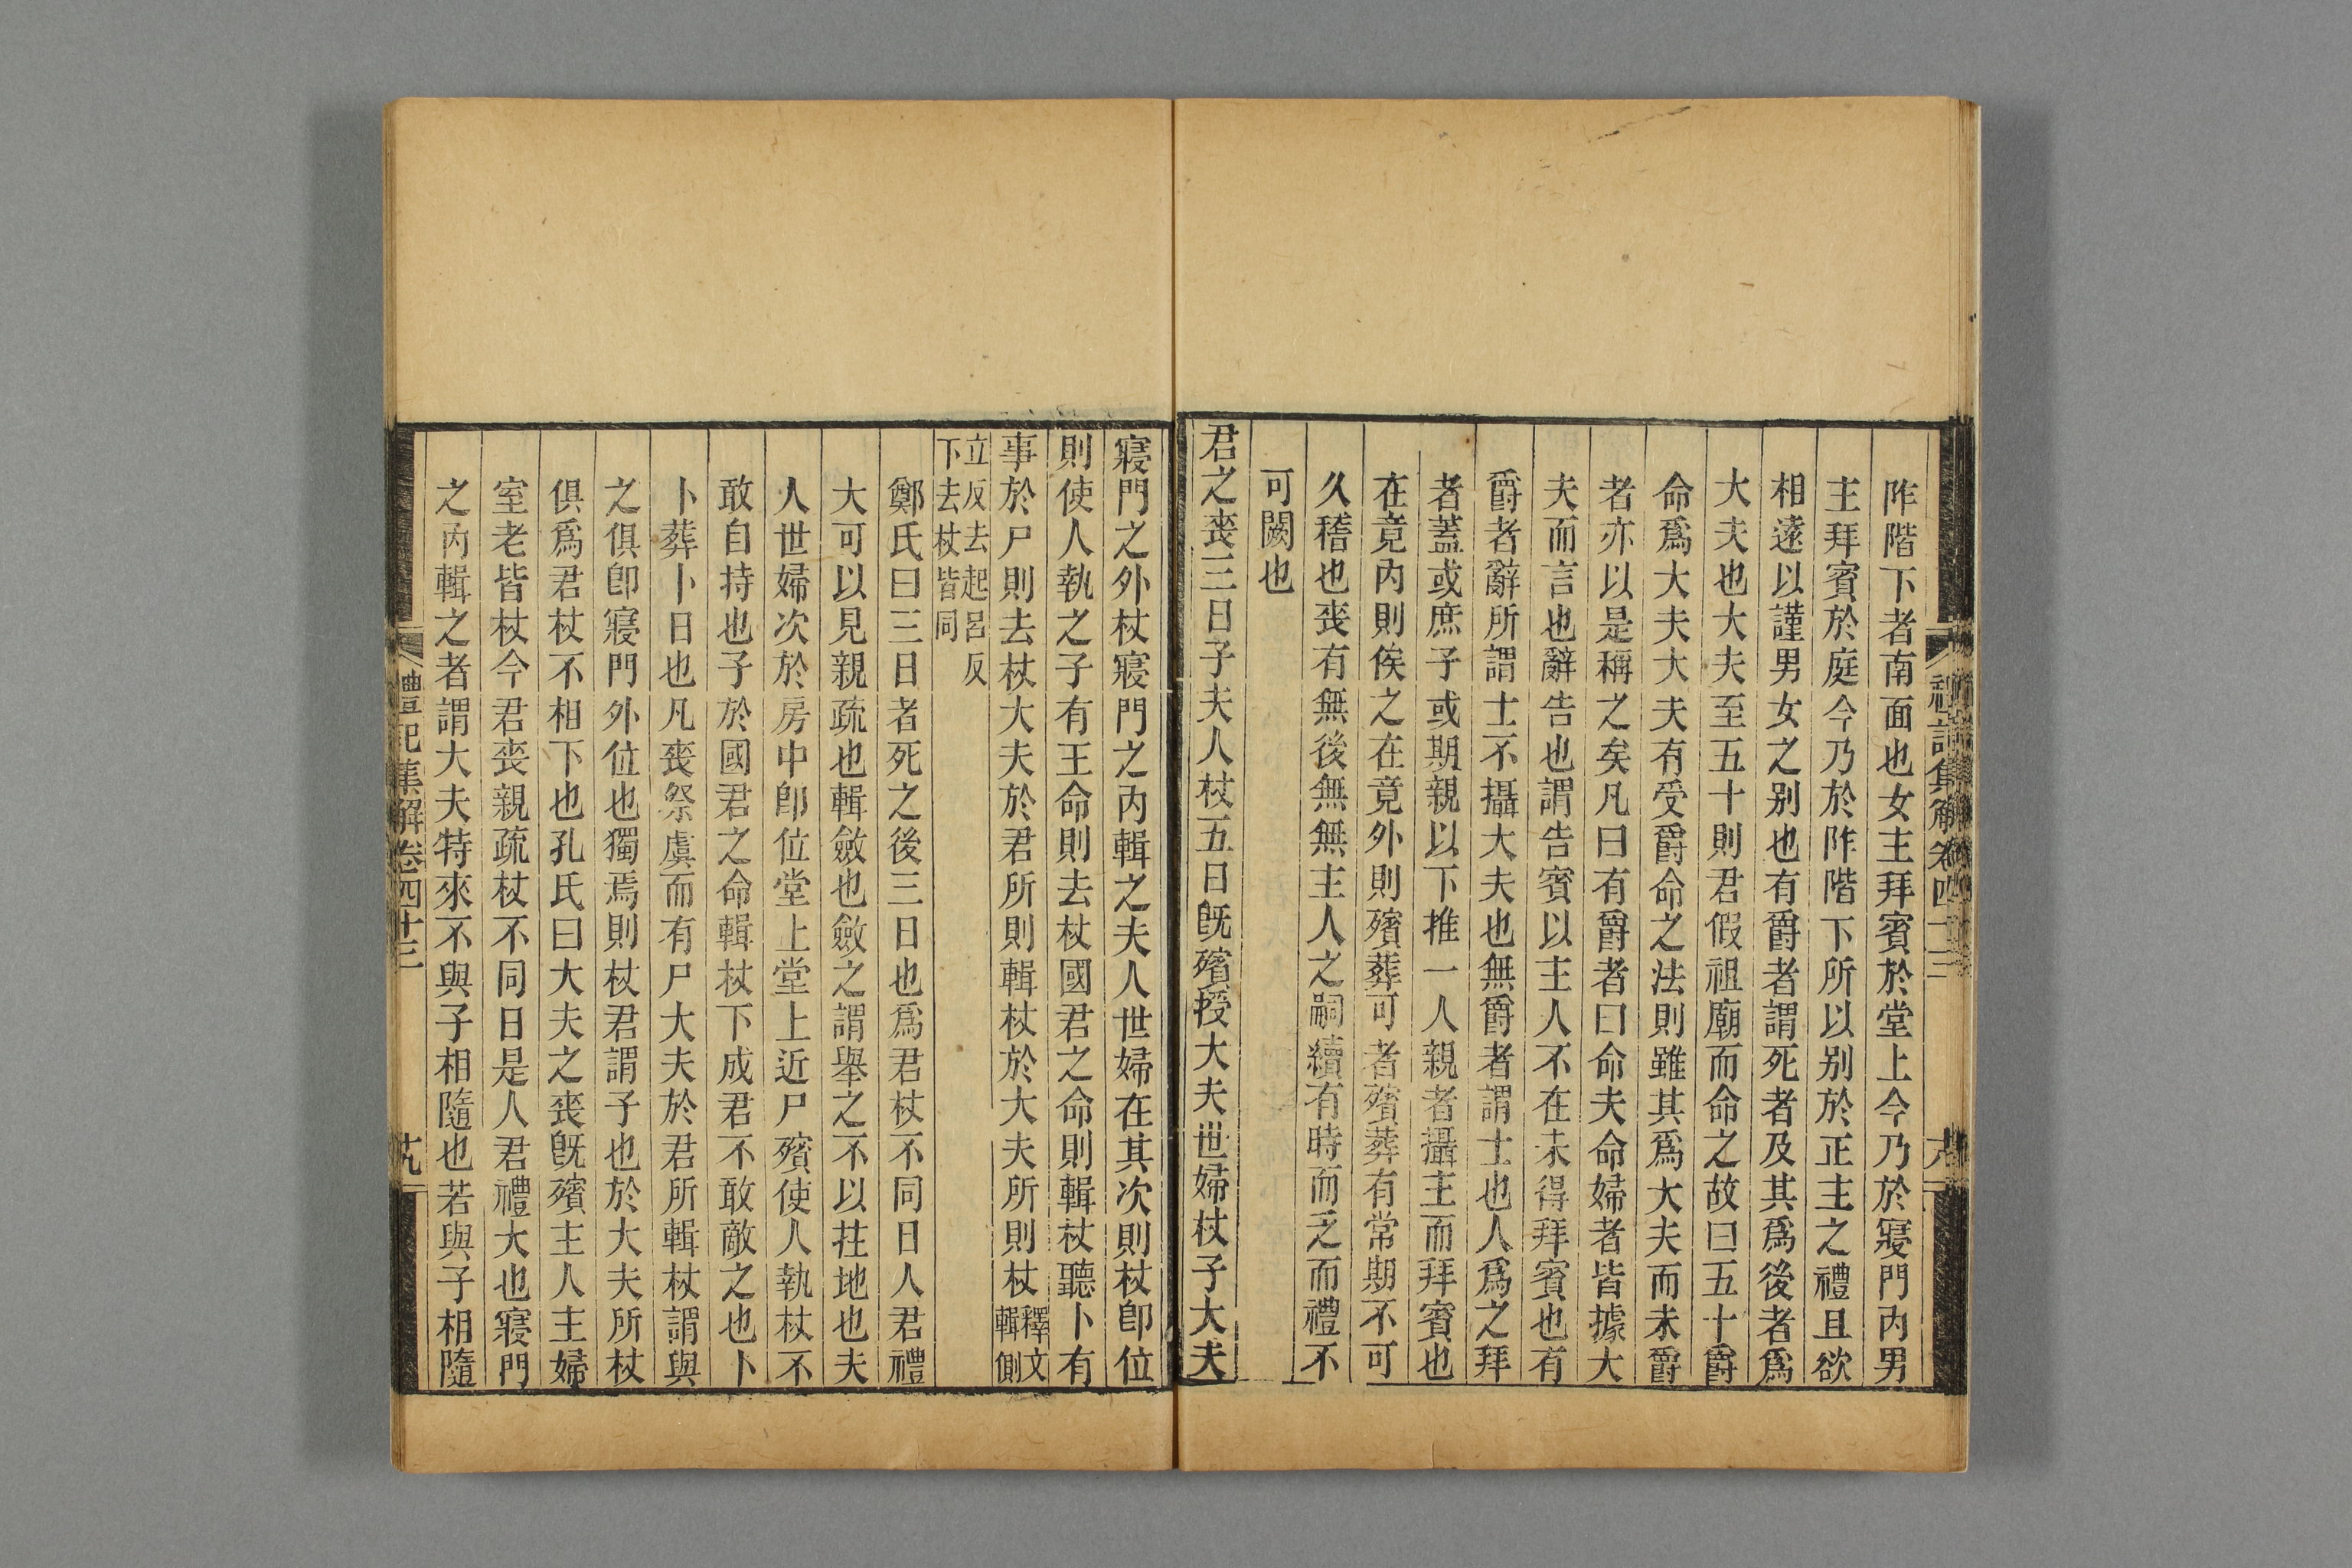 阼階下者南面也女主拜賓於堂上今乃於寢門內男
主拜賓於庭今乃於阼階下所以別於正主之禮且欲
相遠以謹男女之別也有爵者謂死者及其爲後者爲
大夫也大夫至五十則君假祖廟而命之故曰五十爵
命爲大夫大夫有受爵命之法則雖其爲大夫而未爵
者亦以是稱之矣凡曰有爵者曰命夫命婦者皆據大
夫而言也辭告也謂告賓以主人不在未得拜賓也有
爵者辭所謂士不攝大夫也無爵者謂士也人爲之拜
者蓋或庶子或期親以下推一人親者攝主而拜賓也
在竟內則俟之在竟外則殯葬可者殯葬有常期不可
久稽也喪有無後無無主人之嗣續有時而乏而禮不
可闕也
君之喪三日子夫人杖五日旣殯授大夫世婦杖子大夫
寢門之外杖寢門之內輯之夫人世婦在其次則杖卽位
則使人執之子有王命則去杖國君之命則輯杖聽卜有
事於尸則去杖大夫於君所則輯杖於大夫所則杖釋文輯側
立反去起呂反下去杖皆同
鄭氏曰三日者死之後三日也爲君杖不同日人君禮
大可以見親疏也輯斂也斂之謂舉之不以拄地也夫
人世婦次於房中卽位堂上堂上近尸殯使人執杖不
敢自持也子於國君之命輯杖下成君不敢敵之也卜
卜葬卜日也凡喪祭虞而有尸大夫於君所輯杖謂與
之俱卽寢門外位也獨焉則杖君謂子也於大夫所杖
俱爲君杖不相下也孔氏曰大夫之喪旣殯主人主婦
室老皆杖今君喪親疏杖不同日是人君禮大也寢門
之內輯之者謂大夫特來不與子相隨也若與子相隨
禮記集解卷四十三
十九